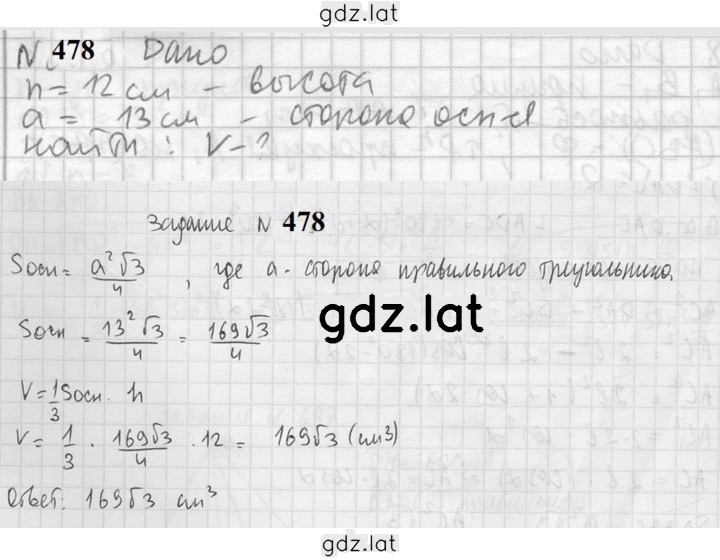 gdz.lat
N 478 Дано
h = 12 см - высота
a = 13 см - сторона осн-я
найти: V-?
Задание N 478
Sосн = a²√3/4, где a - сторона правильного треугольника.
Sосн = 13²√3/4 = 169√3/4
gdz.lat
V = 1/3 Sосн · h
V = 1/3 · 169√3/4 · 12 = 169√3 (см³)
Ответ: 169√3 см³
gdz.lat